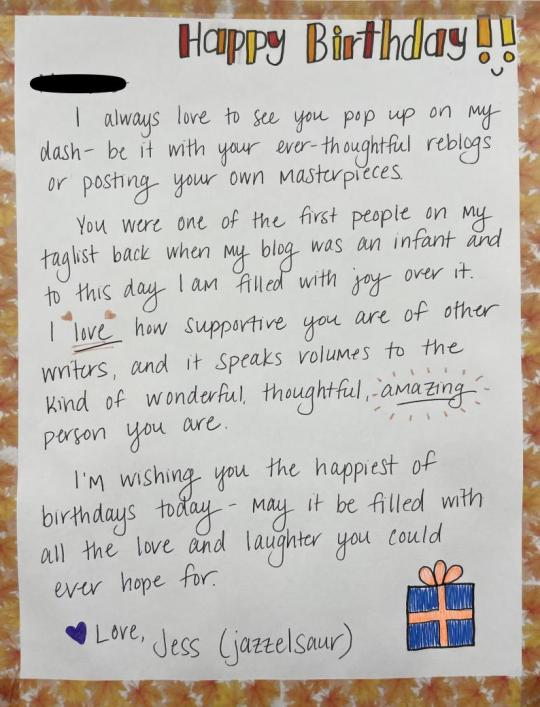 Happy Birthday!!
I always love to see you pop up on my
dash- be it with your ever-thoughtful reblogs
or posting your own masterpieces.
You were one of the first people on my
taglist back when my blog was an infant and
to this day I am filled with joy over it.
I love how supportive you are of other
writers, and it speaks volumes to the
kind of wonderful, thoughtful, amazing
person you are.
I'm wishing you the happiest of
birthdays today - may it be filled with
all the love and laughter you could
ever hope for.
Love, Jess (jazzelsaur)